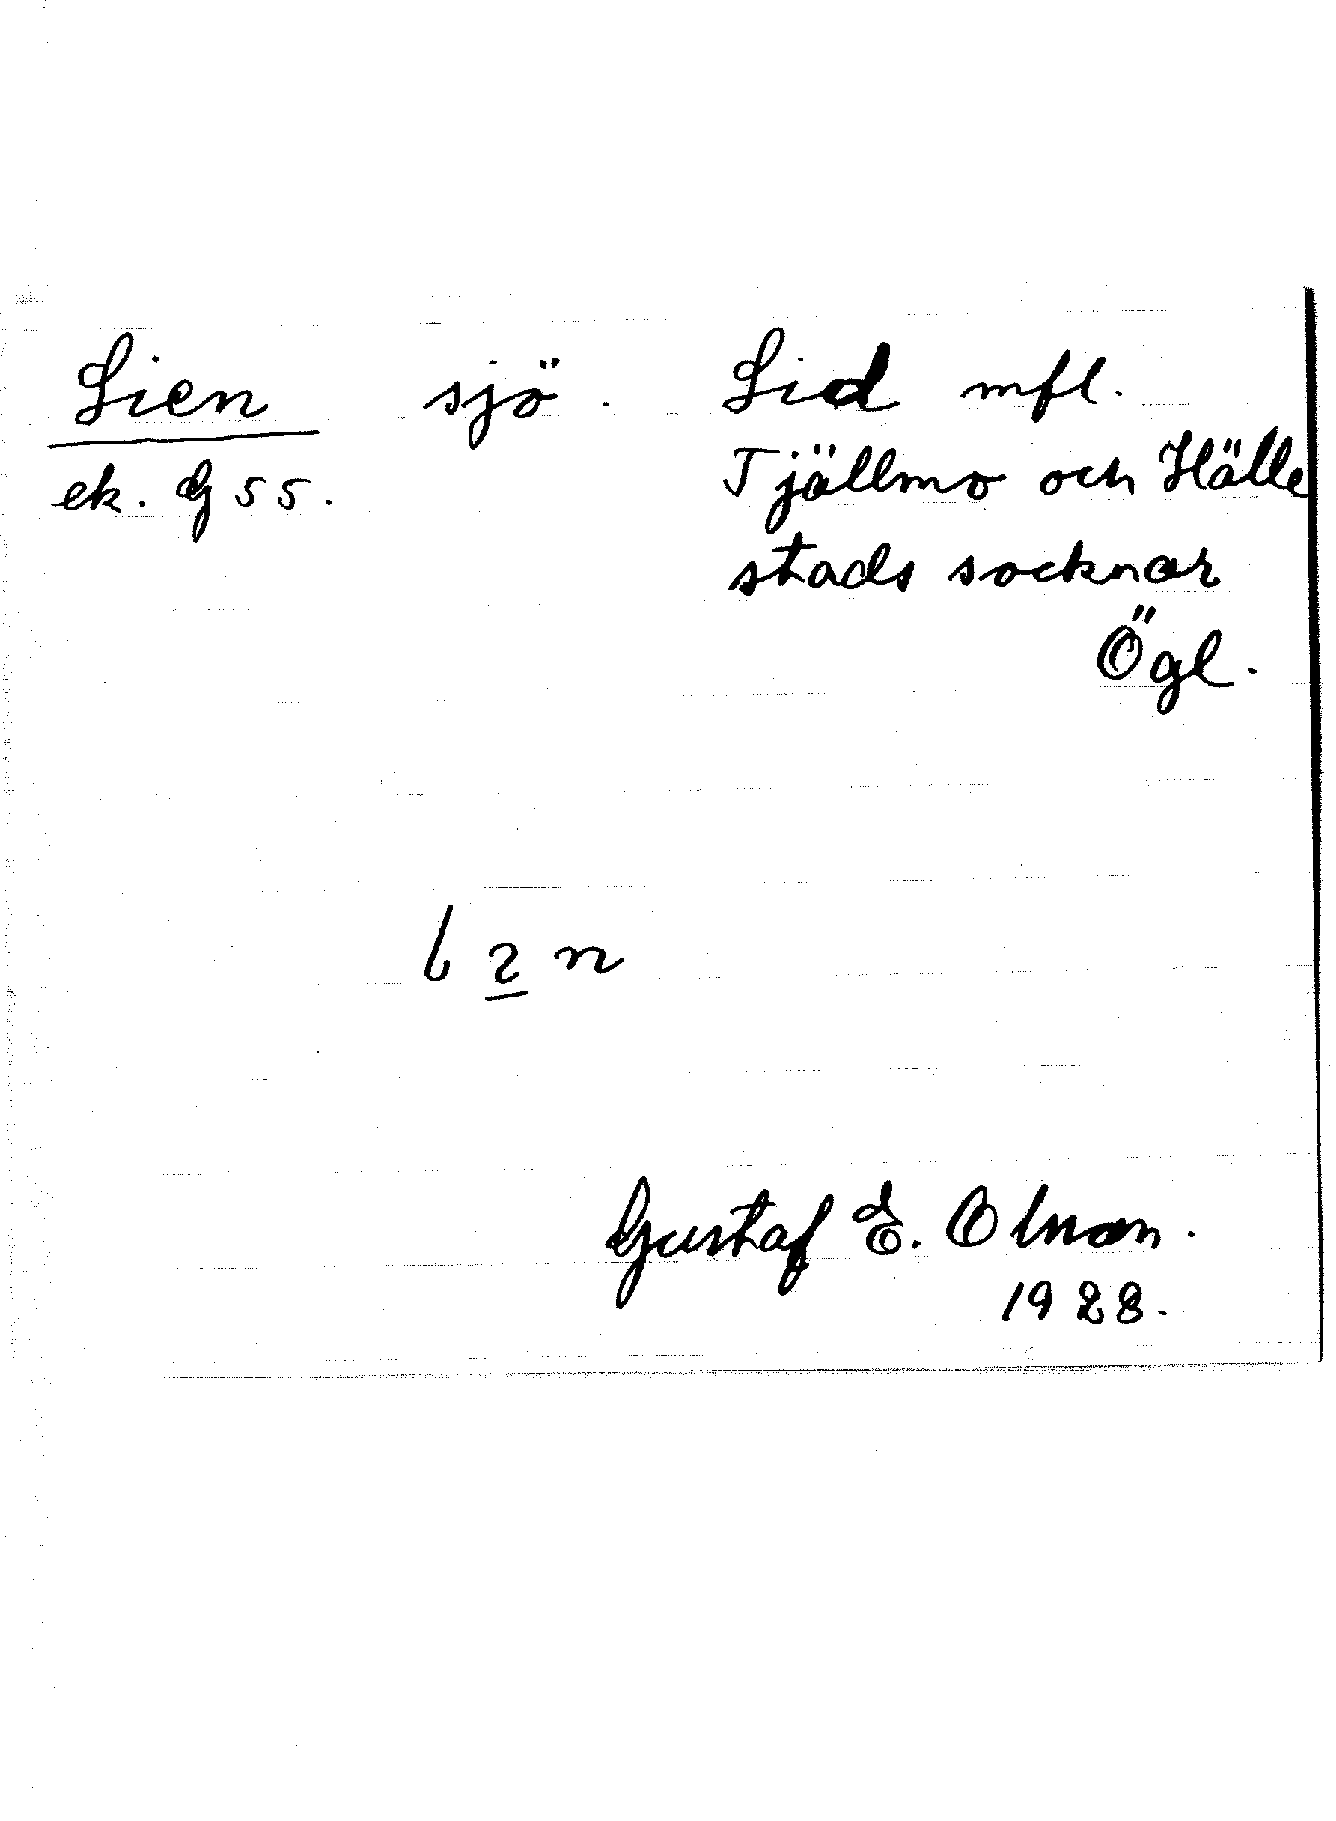 Lien sjö. Lid mfl.
ek. G 55. Tjällmo och Hälle
stads socknar
Ögl.
Gustaf E. Olman.
1928.